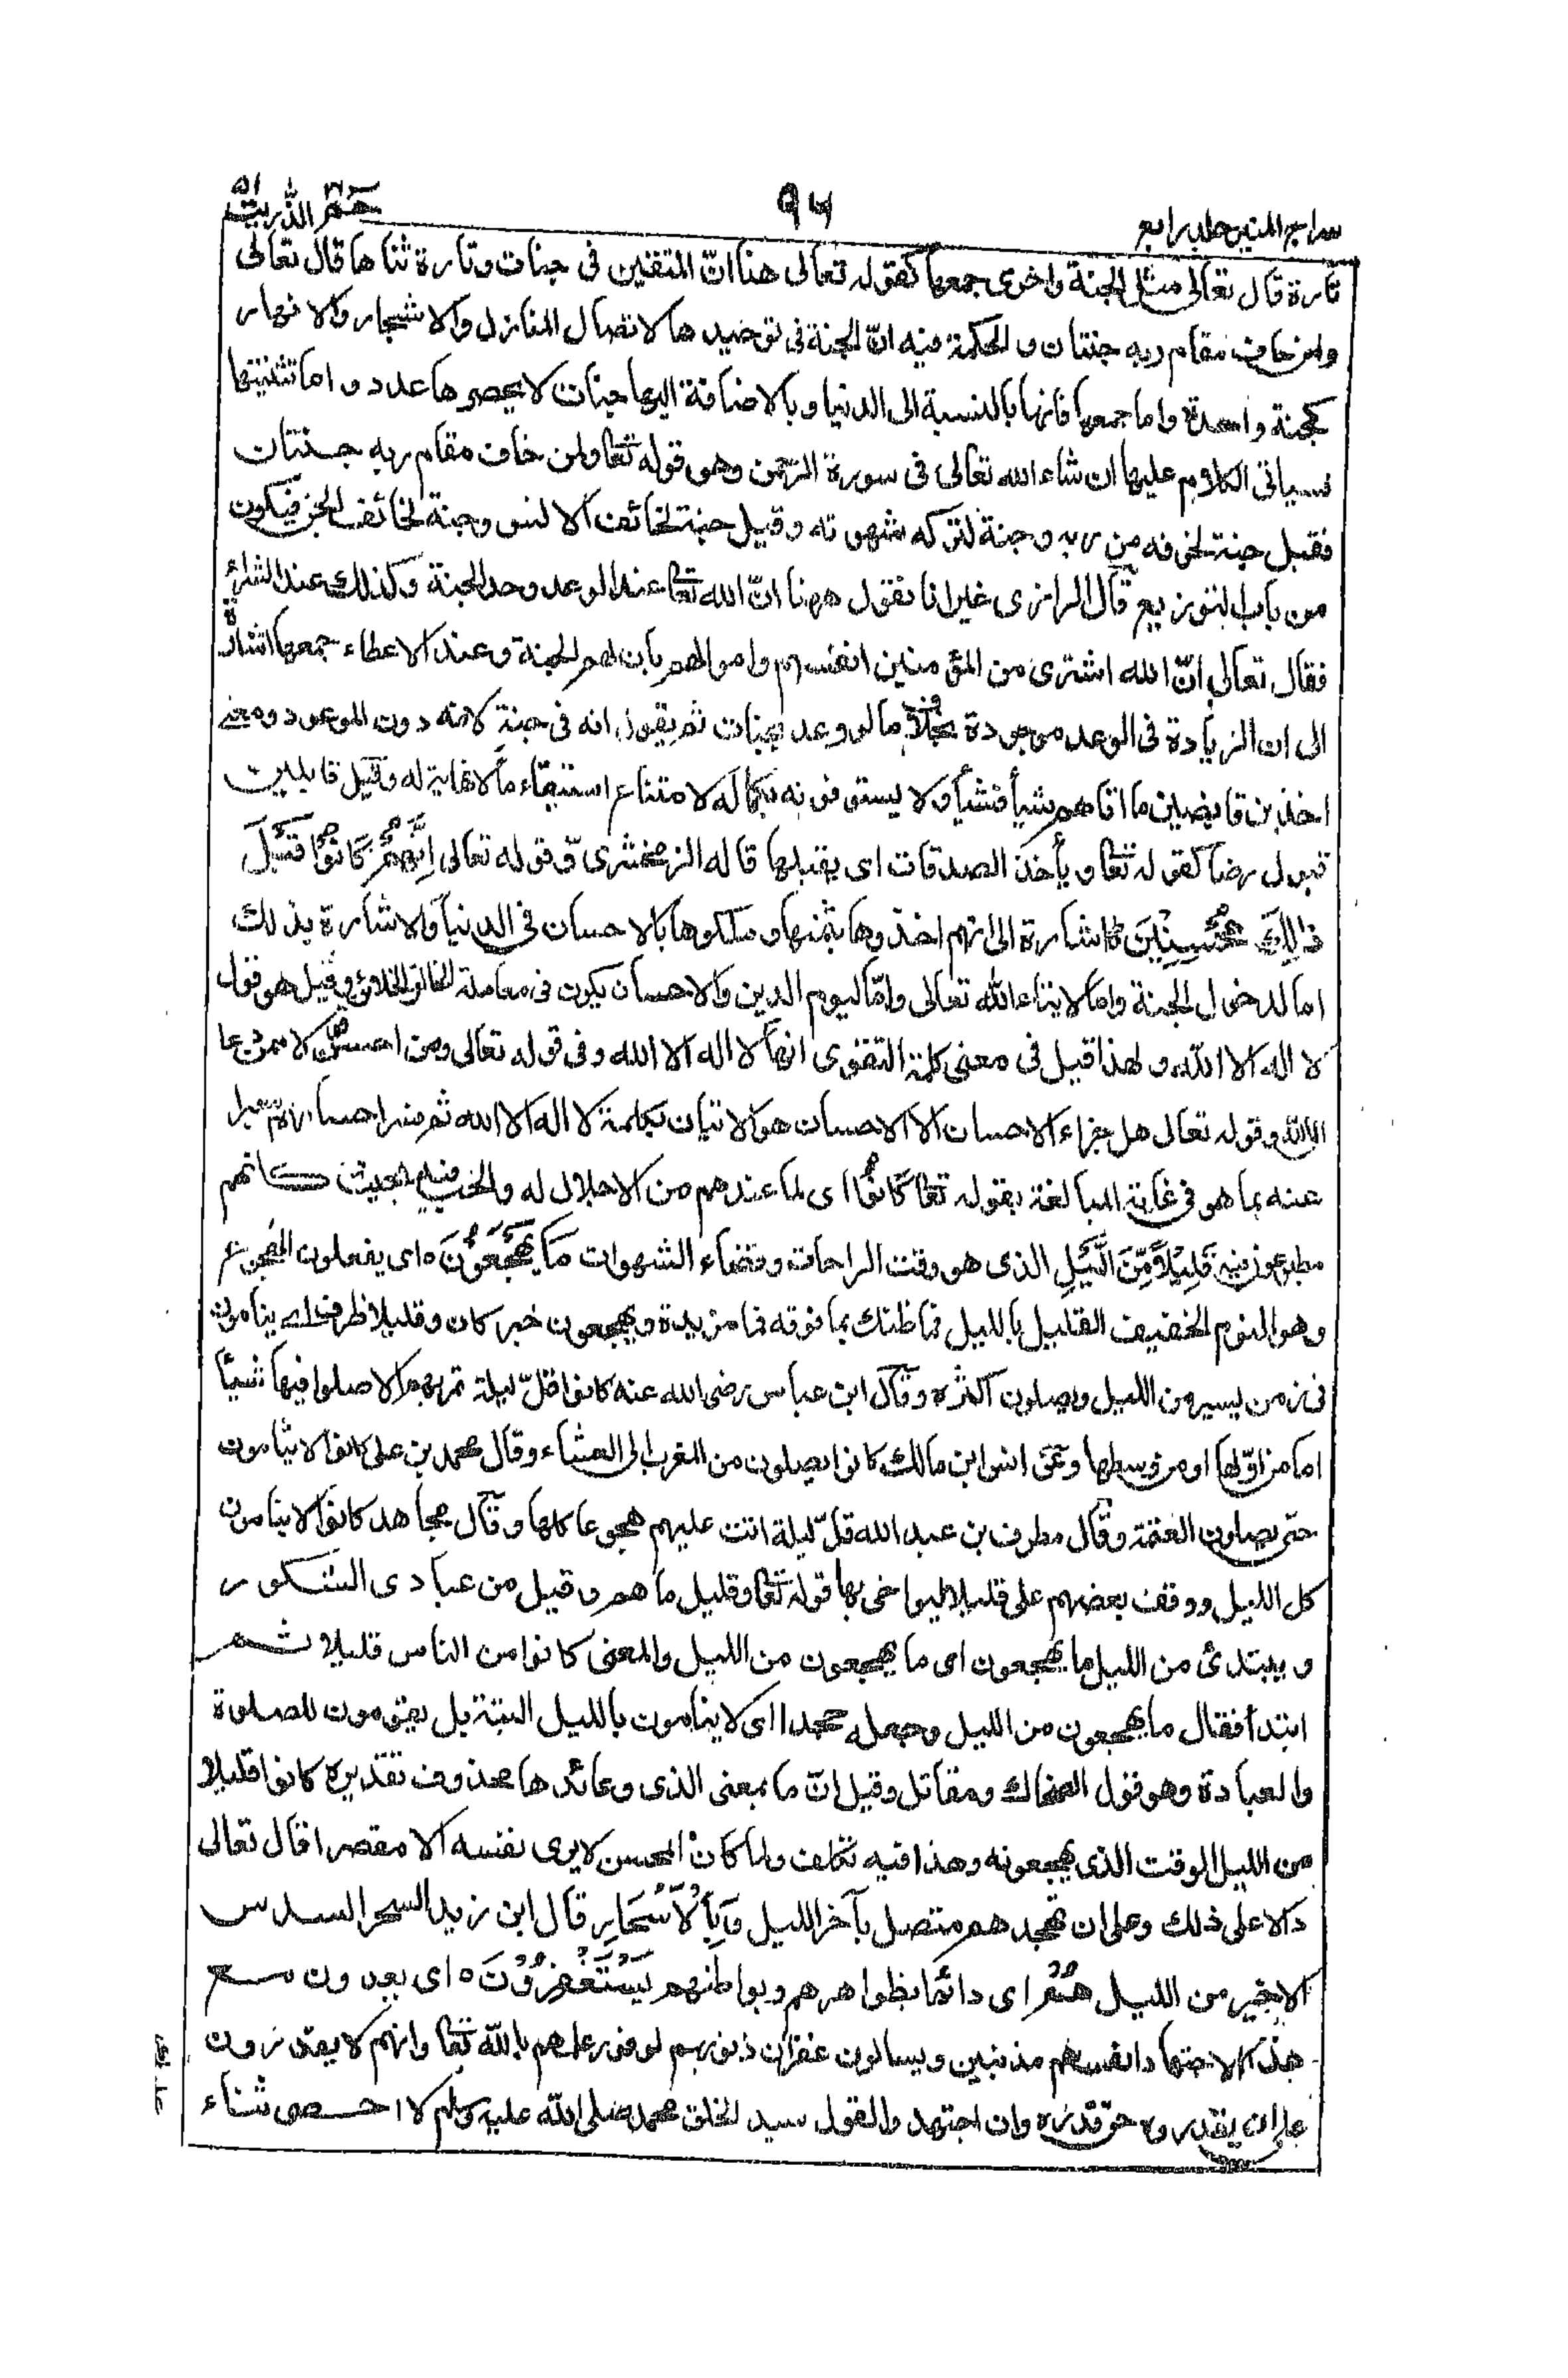 سراج المنير جلد رابع ٩٦ حم الذريت ٥١
تارة قال تعالى مثل الجنة واخرى جمعها كقوله تعالى هنا انّ المتقين فى جنات وتارة ثناها قال تعالى
ولمن خاف مقام ربه جنتان و الحكمة فيه انّ الجنة فى توحيدها لاتصال المنازل والاشجار والانهار
كجنة واحدة واما جمعها فانها بالنسبة الى الدنيا وبالاضافة اليها جنات لا يحصرها عدد و اما تثنيتها
فسياتى الكلام عليها ان شاء الله تعالى فى سورة الرحمن وهو قوله تعا ولمن خاف مقام ربه جنتان
فقيل جنة لخوفه من ربه وجنة لتركه شهوته وقيل جنة لخائف الانس وجنة لخائف الجن فيكون
من باب التوزيع قال الرازى غير انا نقول ههنا انّ الله تعا عند الوعد وحد الجنة وكذلك عند الشراء
فقال تعالى انّ الله اشترى من المؤمنين انفسهم واموالهم بان لهم الجنة وعند الاعطاء جمعها اشارة
الى ان الزيادة فى الوعد موجودة بخلاف ما لو وعد بجنات ثم يقول انه فى جنة لانه دون الموعود ومعنى
اخذين قابضين ما اتاهم شيأ فشيأ ولا يستوفونه بكماله لامتناع استيفاء ما لا نهاية له وقيل قابلين
قبول رضا كقوله تعا و يأخذ الصدقات اى يقبلها قاله الزمخشرى وقوله تعالى اِنَّهُمْ كَانُوْا قَبْلَ
ذٰلِكَ مُحْسِنِيْنَ ه اشارة الى انهم اخذوها بثمنها وملكوها بالاحسان فى الدنيا والاشارة بذلك
اما لدخول الجنة واما لايتاء الله تعالى وامّا ليوم الدين والاحسان يكون فى معاملة الخالق والخلائق وقيل هو قول
لا اله الا الله و لهذا قيل فى معنى كلمة التقوى انها لا اله الا الله وفى قوله تعالى ومن احسن قولا ممن دعا
الى الله وقوله تعالى هل جزاء الاحسان الا الاحسان هو الاتيان بكلمة لا اله الا الله ثم فسر احسانهم معبرا
عنه بما هو فى غاية المبالغة بقوله تعا كَانُوْا اى لما عندهم من الاجلال له والحب فيه بحيث كانهم
مطبوعون فيه قَلِيْلًا مِّنَ الَّيْلِ الذى هو وقت الراحات وقضاء الشهوات مَا يَهْجَعُوْنَ ه اى يفعلون الهجوع
وهو النوم الخفيف القليل بالليل فما ظنك بما فوقه فما مزيدة ويهجعون خبر كان وقليلا ظرف اى ينامون
فى زمن يسير من الليل ويصلون اكثره وقال ابن عباس رضى الله عنه كانوا قلّ ليلة تمر بهم الا صلوا فيها شيئا
اما من اوّلها او من وسطها وعن انس ابن مالك كانوا يصلون من المغرب الى العشاء وقال محمد بن على كانوا لا ينامون
حتى يصلون العتمة وقال مطرف بن عبد الله قلّ ليلة اتت عليهم هجوعا كلها وقال مجاهد كانوا لا ينامون
كل الليل ووقف بعضهم على قليلا ليواخى بها قوله تعا وقليل ما هم وقيل من عبادى الشكور
و يبتدئ من الليل ما يهجعون اى ما يهجعون من الليل والمعنى كانوا من الناس قليلا ثم
ابتدأ فقال ما يهجعون من الليل وجعله جحدا اى لا ينامون بالليل البتة بل يقومون للصلوة
والعبادة وهو قول الضحاك ومقاتل وقيل انّ ما بمعنى الذى وعائدها محذوف تقديره كانوا قليلا
من الليل الوقت الذى يهجعونه وهذا فيه تكلف ولما كان المحسن لا يرى نفسه الا مقصرا قال تعالى
دالا على ذلك وعلى ان تهجدهم متصل بآخر الليل وَبِالْاَسْحَارِ قال ابن زيد السحر السدس
الاخير من الليل هُمْ اى دائما بظواهرهم وبواطنهم يَسْتَغْفِرُوْنَ ه اى يعدون مع
هذا الاجتهاد انفسهم مذنبين ويسالون غفران ذنوبهم لوفور علمهم بالله تعا وانهم لا يقدرون
على ان يقدروه حق قدره وان اجتهد والقول سيد الخلق محمد صلى الله عليه وسلم لا احصى ثناء